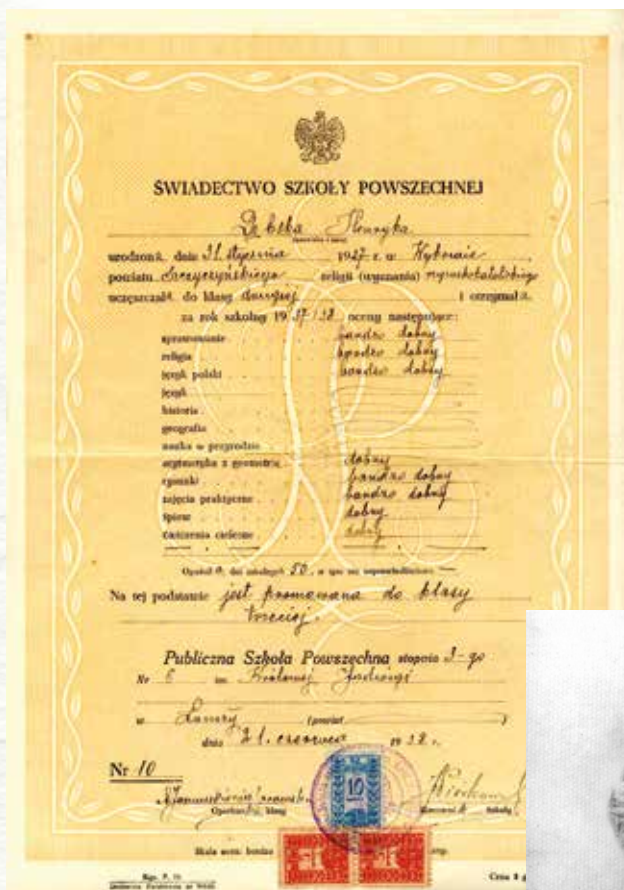 ŚWIADECTWO SZKOŁY POWSZECHNEJ
Dębska Henryka
urodzona dnia 31 stycznia 1927 r. w
powiatu Szczuczyńskiego religii (wyznania) rzymskokatolickiego
uczęszczała do klasy drugiej i otrzymała
za rok szkolny 1937/38 oceny następujące:
sprawowanie bardzo dobry
religia bardzo dobry
język polski bardzo dobry
język
historia
geografia
nauka o przyrodzie
arytmetyka z geometrią dobry
rysunki bardzo dobry
zajęcia praktyczne bardzo dobry
śpiew dobry
ćwiczenia cielesne dobry
Opuściła dni szkolnych 50, w tym nie usprawiedliwiono —
Na tej podstawie jest promowana do klasy
trzeciej.
Publiczna Szkoła Powszechna stopnia 3-go
Nr 6 im. Królowej Jadwigi
w Łomży (powiat )
dnia 21. czerwca 1938 r.
Nr 10
10
Opiekun klasy Kierownik szkoły
Skala ocen: bardzo
Cena 8 g